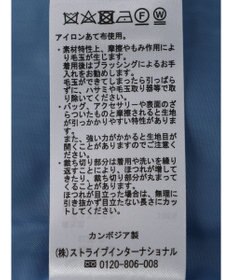 アイロンあて布使用。
・素材特性上、摩擦やもみ作用によ
り毛玉が生じます。
着用後はブラッシングによるお手
入れをお勧めします。
毛玉ができてしまったら引っぱら
ずに、ハサミや毛玉取り器等で取
り除いてください。
・バッグ、アクセサリーや表面のざ
らついたものと摩擦されると生地
が引っかかりやすい特性がありま
す。
また、強い力がかかると生地目が
開くことがありますのでご注意く
ださい。
・裁ち切り部分は着用や洗いを繰り
返すことにより、ほつれが増して
くる、裁ち切り部分が丸まってく
ることがあります。
ほつれが目立った場合は、無理に
引き抜かず目立たない長さにカッ
トしてください。
カンボジア製
(株)ストライプインターナショナル
☎ 0120-806-008